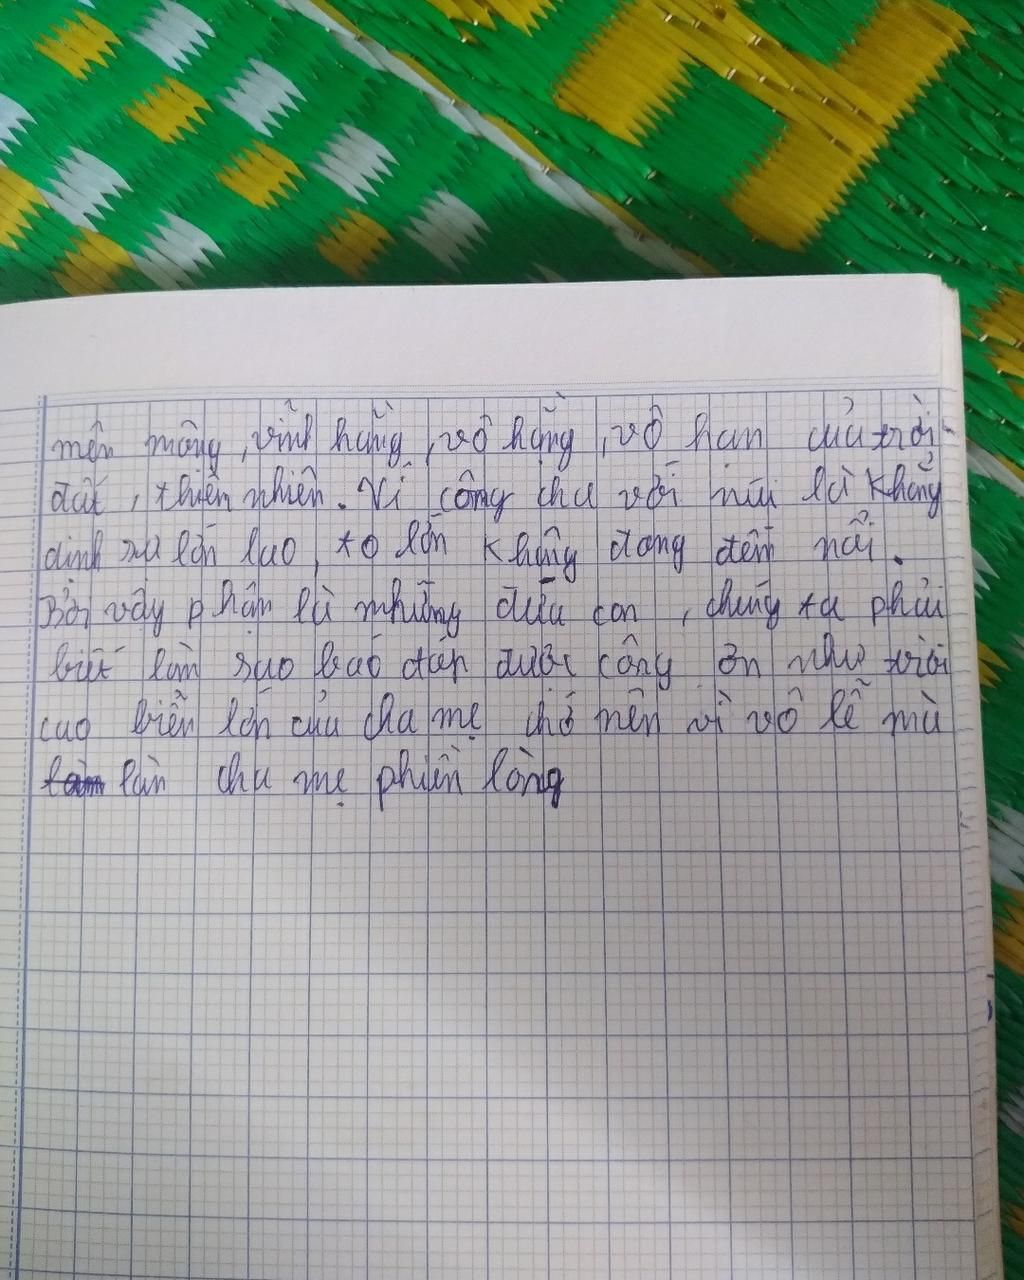 mên mông, vĩnh hằng, vô hằng, vô hạn của trời
đất, thiên nhiên. Ví công cha với núi là khẳng
định sự lớn lao, to lớn không đong đếm nổi.
Bởi vậy phận là những đứa con, chúng ta phải
biết làm sao báo đáp được công ơn như trời
cao biển lớn của cha mẹ chớ nên vì vô lễ mà
làn cha mẹ phiền lòng